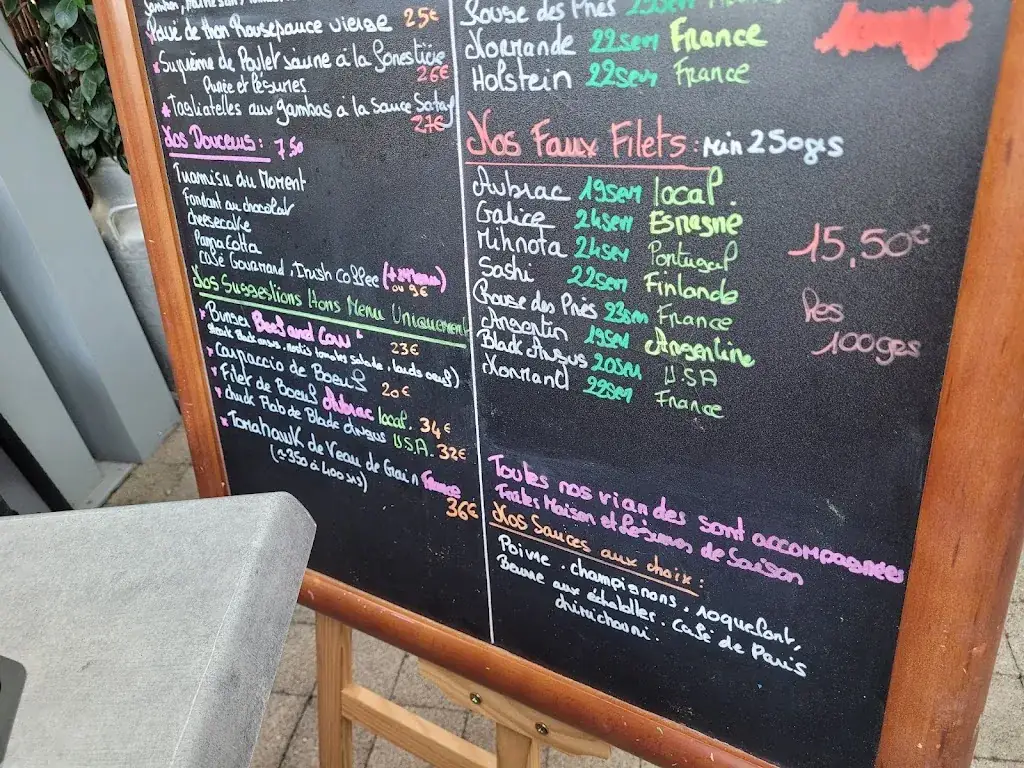 Pavé de thon Rousepauce vierge 25€
Suprême de Poulet jaune à la forestière
Purée et légumes 26€
Tagliatelles aux gambas à la sauce Satay
27€
Nos Douceurs : 7,50
Tiramisu du Moment
Fondant au chocolat
cheesecake
Panna Cotta
Café Gourmand, Irish Coffee (+2€ Menu)
ou 9€
Nos Suggestions Hors Menu Uniquement
Burger Beef and Cow
23€
Carpaccio de Boeuf
20€
Filet de Boeuf Aubrac local. 34€
Chuck Flab de Blade Angus U.S.A. 32€
Tomahawk de Veau de Grain France
(≈350 à 400grs)
36€
Rouge des Prés 23sem
Normande 22sem France
Holstein 22sem France
Nos Faux Filets : Min 250grs
Aubrac 19sem local.
Galice 24sem Espagne
Mihnota 24sem Portugal
Sashi 22sem Finlande
Rouge des Prés 23sem France
Argentin 19sem Argentine
Black Angus 20sem U.S.A
Normand 22sem France
15,50€
les
100grs
Toutes nos viandes sont accompagnées
Frites Maison et légumes de Saison
Nos Sauces aux choix :
Poivre . champignons . roquefort,
Beurre aux échalotter . Café de Paris
chimichouri.